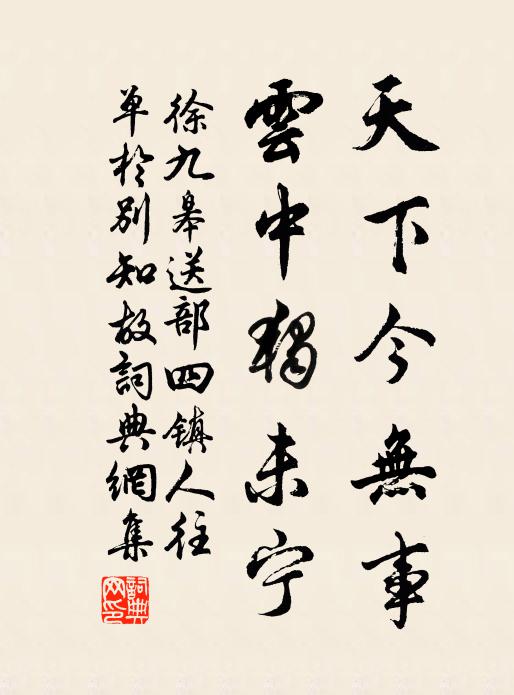 天下今無事
雲中獨未宁
徐九皋送部四镇人往
单於别知故詞典網集
詞典網印